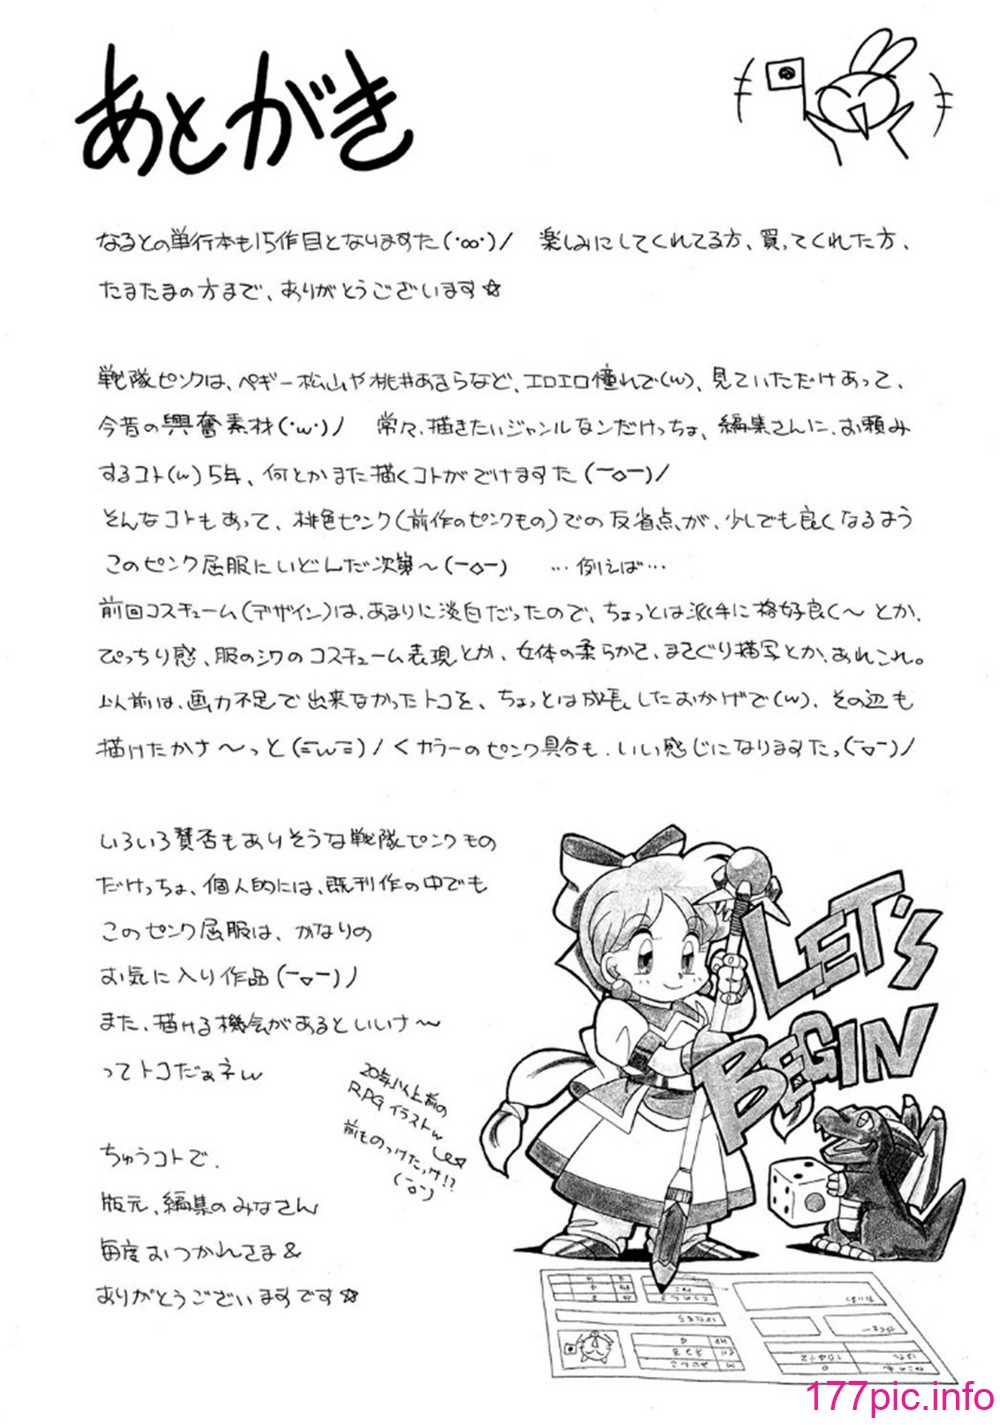 あとがき
なるとの単行本も15作目となりますた(・∞・)ノ 楽しみにしてくれてる方、買ってくれた方、
たまたまの方まで、ありがとうございます☆
戦隊ピンクは、ペギー松山や桃井あきらなど、エロエロ憧れで(w)、見ていただけあって、
今昔の興奮素材(・w・)ノ 常々、描きたいジャンルなンだけっちょ、編集さんに、お頼み
するコト(w)5年、何とかまた描くコトがでけますた(￣◇￣)ノ
そんなコトもあって、桃色ピンク(前作のピンクもの)での反省点が、少しでも良くなるよう
このピンク屈服にいどんだ次第〜(￣◇￣) …例えば…
前回コスチューム(デザイン)は、あまりに淡白だったので、ちょっとは派手に格好良く〜とか、
ぴっちり感、服のシワのコスチューム表現とか、女体の柔らかさ、まさぐり描写とか、あれこれ。
以前は、画力不足で出来なかったトコを、ちょっとは成長したおかげで(w)、その辺も
描けたかナ〜っと(≡w≡)ノ くカラーのピンク具合も、いい感じになりますたっ(￣▽￣)ノ
いろいろ賛否もありそうな戦隊ピンクもの
だけっちょ、個人的には、既刊作の中でも
このピンク屈服は、かなりの
お気に入り作品(￣▽￣)ノ
また、描ける機会があるといいナ〜
ってトコだぁネw
20年以上前の
RPGイラストw
前ものっけたっけ!?
LET'S
BEGIN
ちゅうコトで、
版元、編集のみなさん
毎度おつかれさま&
ありがとうございますです☆
177pic.info